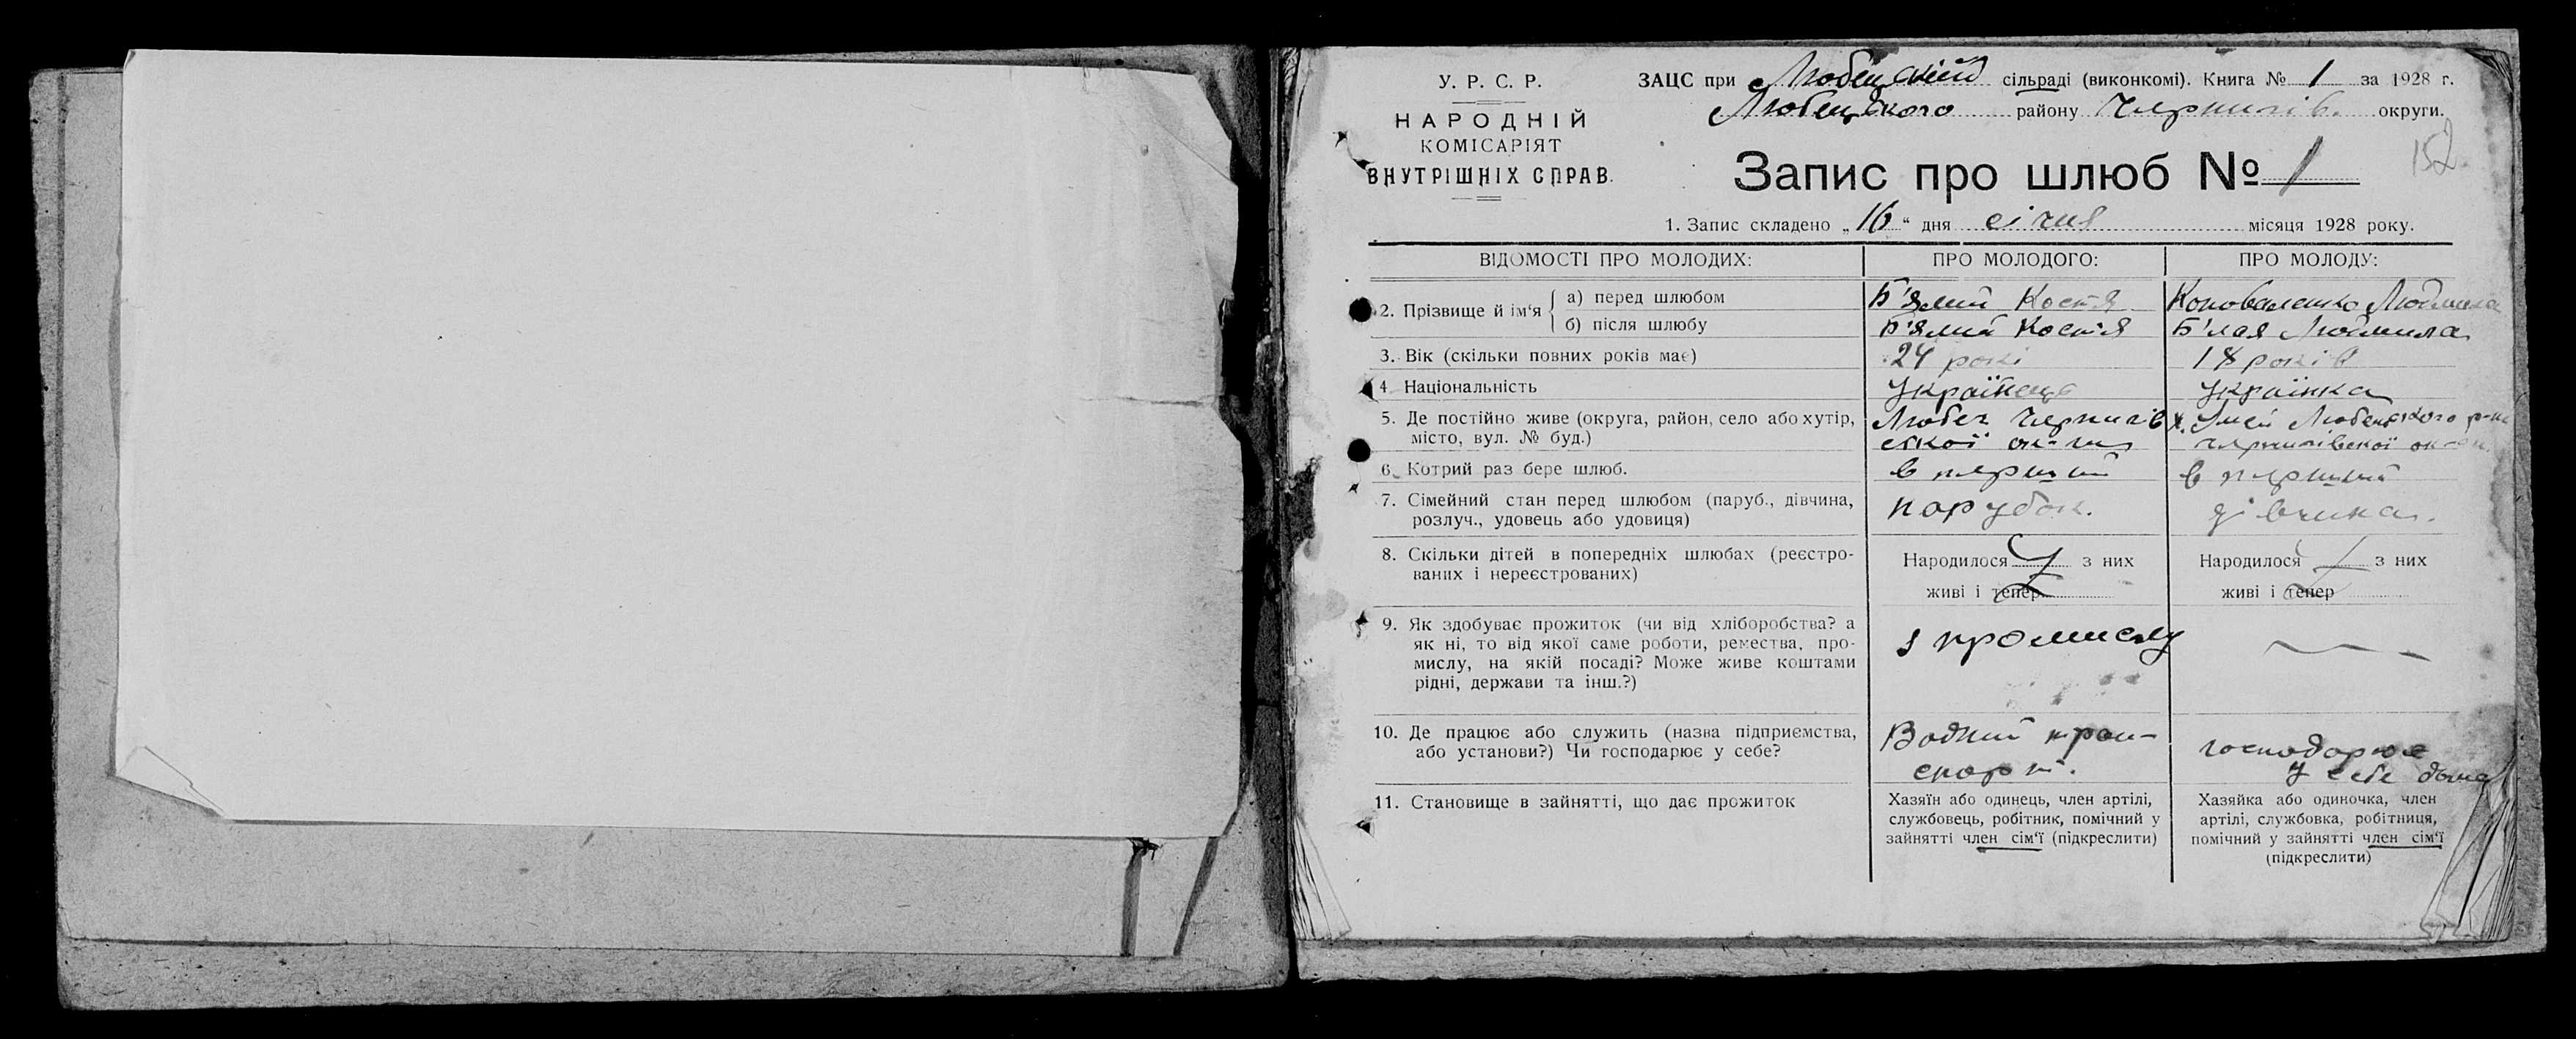 У. Р. С. Р.
НАРОДНІЙ
КОМІСАРІЯТ
ВНУТРІШНІХ СПРАВ.
ЗАЦС при Любецькій сільраді (виконкомі). Книга № 1 за 1928 г.
Любецького району Чернигів. округи.
152
Запис про шлюб № 1
1. Запис складено „16“ дня січня місяця 1928 року.
ВІДОМОСТІ ПРО МОЛОДИХ: ПРО МОЛОДОГО: ПРО МОЛОДУ:
2. Прізвище й ім‘я
а) перед шлюбом Костя Коноваленко Людмила
б) після шлюбу Костя Людмила
3. Вік (скільки повних років має) 24 рокі 18 років
4. Національність Українець Українка
5. Де постійно живе (округа, район, село або хутір, місто, вул. № буд.)
Любеч Чернигів
ської ок-ги
х. Любецького р-ну
Чернигівської
6. Котрий раз бере шлюб. в перший в перший
7. Сімейний стан перед шлюбом (паруб., дівчина,
розлуч., удовець або удовиця)
парубок. дівчина.
8. Скільки дітей в попередніх шлюбах (реєстро-
ваних і нереєстрованих)
Народилося з них
живі і тепер
Народилося з них
живі і тепер
9. Як здобуває прожиток (чи від хліборобства? а
як ні, то від якої саме роботи, ремества, про-
мислу, на якій посаді? Може живе коштами
рідні, держави та інш.?)
з промислу
10. Де працює або служить (назва підприємства,
або установи?) Чи господарює у себе?
Водний тран-
спорт.
господарює
у себе дома
11. Становище в зайнятті, що дає прожиток
Хазяїн або одинець, член артілі,
службовець, робітник, помічний у
зайнятті член сім‘ї (підкреслити)
Хазяйка або одиночка, член
артілі, службовка, робітниця,
помічний у зайнятті член сім‘ї
(підкреслити)